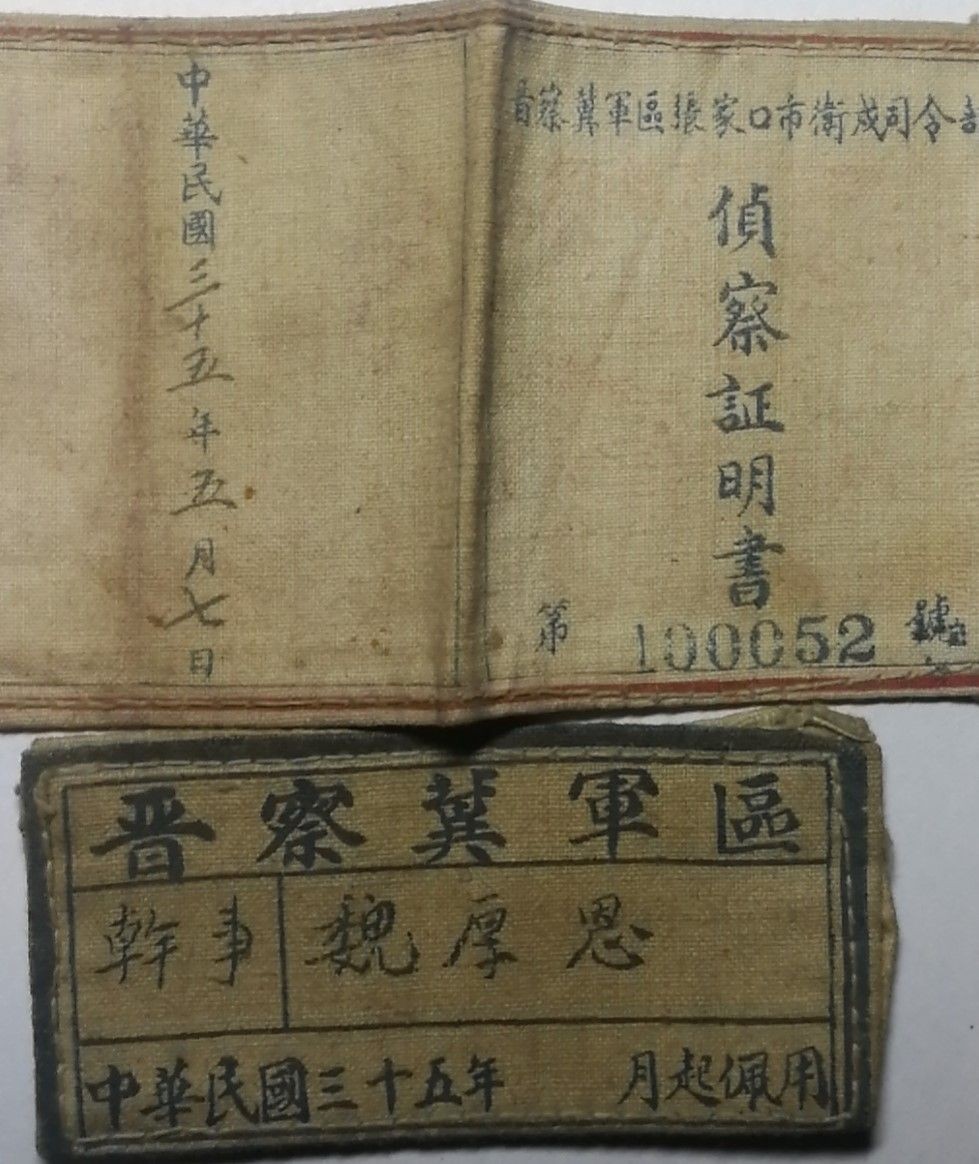 晋察冀軍區張家口市衛戍司令
偵察証明書
第 100052 號
中華民國三十五年五月七日
晋察冀軍區
幹事 魏厚恩
中華民國三十五年 月起佩用